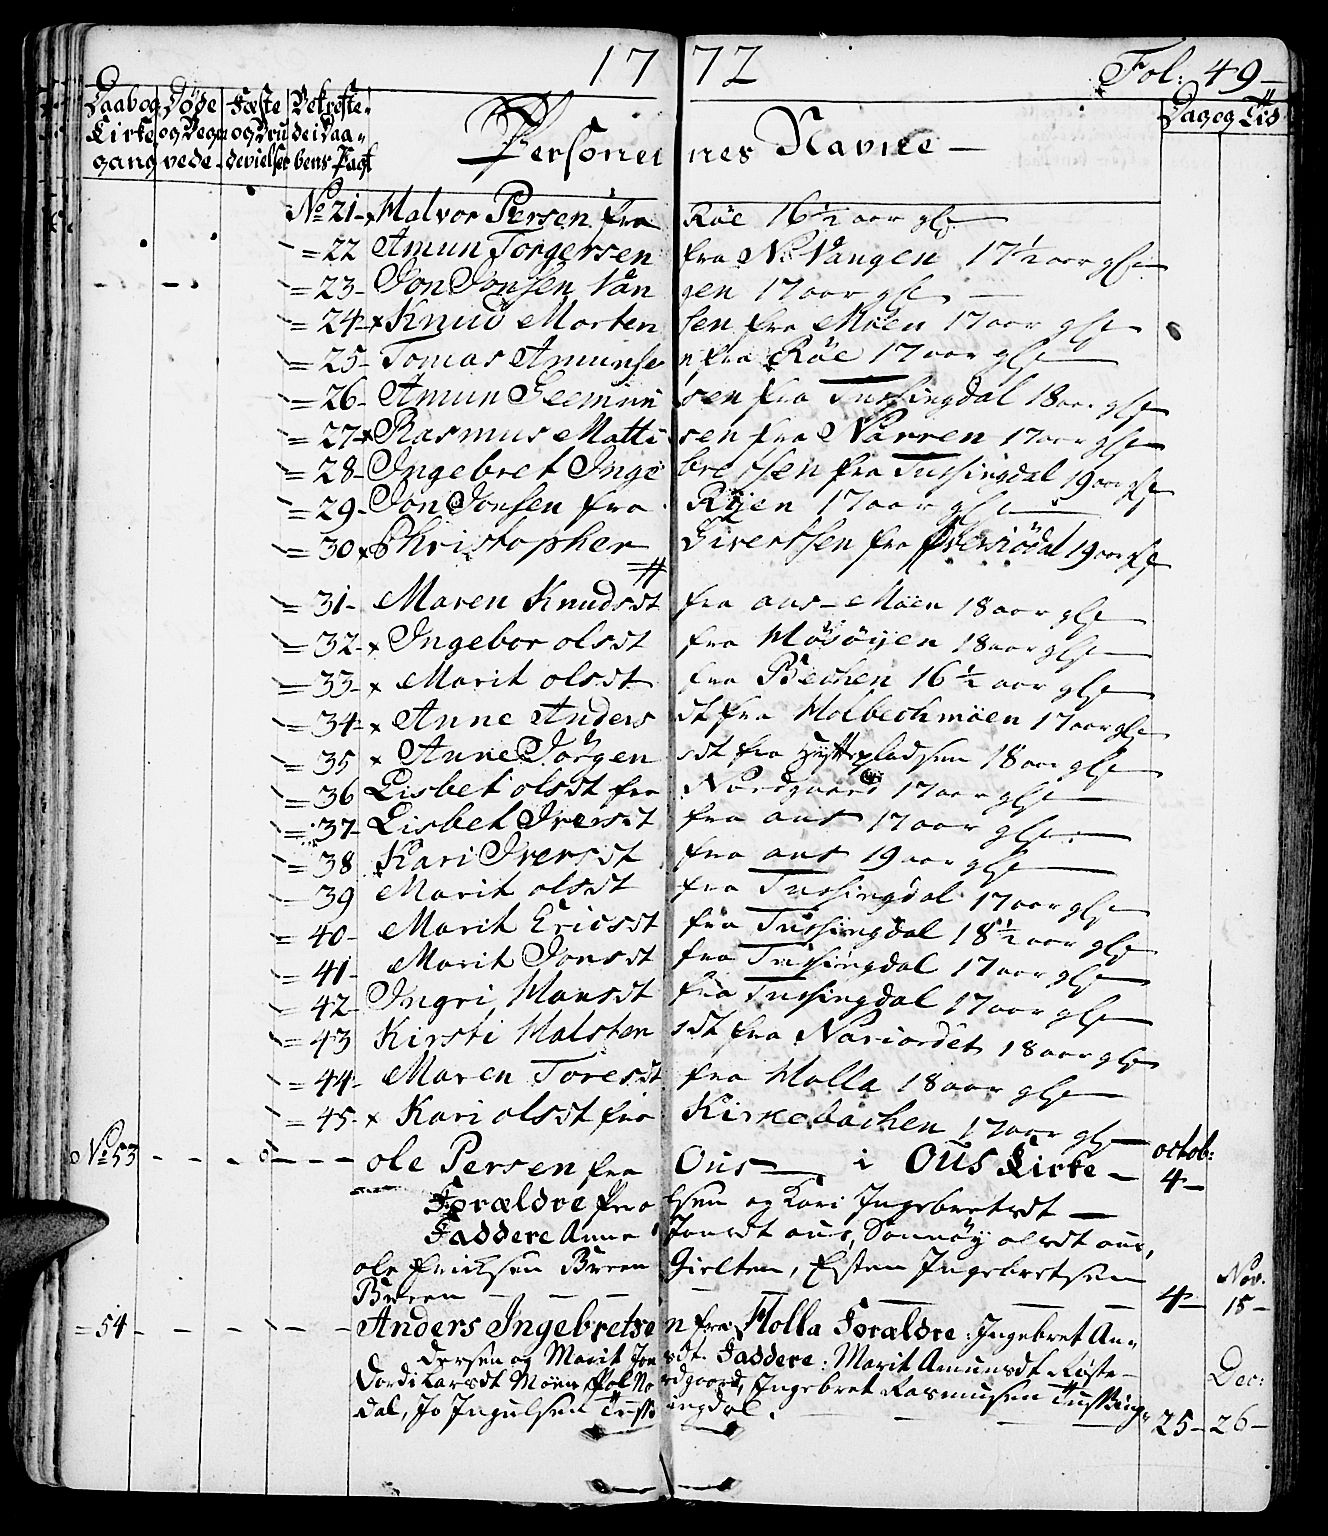 1772 Fol: 49
Daab og Døde Fæste Bekrefte- Dag og Tid
Kirke og Begra og Bru de i Daa-
gang vede devielser bens Pagt
Personernes Navne
No 21 x Halvor Persen fra Röe 16½ aar gl
= 22 Amun Torgersen fra N: Vangen 17½ aar gl
= 23 Jon Jonsen Vangen 17 aar gl
= 24 x Knud Mortensen fra Möen 17 aar gl
= 25 Tomas Amunsen fra Röe 17 aar gl
= 26 Amun Geemunsen fra Tussingdal 18 aar gl
= 27 x Rasmus Mattisen fra Narren 17 aar gl
= 28 Ingebret Ingebretssen fra Tussingdal 19 aar gl
= 29 Jon Jonsen fra Ryen 17 aar gl
= 30 x Christopher Sivertssen fra 19 aar gl
= 31 Maren Knudsdt fra aus Möen 18 aar gl
= 32 x Ingebor olsdt fra Mösöyen 18 aar gl
= 33 x Marit olsdt fra Bechen 16½ aar gl
= 34 x Anne Andersdt fra Holbechmöen 17 aar gl
= 35 x Anne Jörgensdt fra Hytpladsen 18 aar gl
= 36 Lisbet olsdt fra Nordgaard 17 aar gl
= 37 Lisbet Iversdt fra aus 17 aar gl
= 38 Kari Iversdt fra aus 19 aar gl
= 39 Marit olsdt fra Tussingdal 17 aar gl
= 40 Marit Ericsdt fra Tussingdal 18½ aar gl
= 41 Marit Jonsdt fra Tussingdal 17 aar gl
= 42 Ingri Hansdt fra Tussingdal 17 aar gl
= 43 Kirsti Halstensdt fra Nariordet 18 aar gl
= 44 Maren Toresdt fra Holla 18 aar gl
= 45 x Kari olsdt fra Kirkebachen 17 aar gl
No 53 ole Persen fra Ous i Ous Kirke octob: 4
Forældre Per olsen og Kari Ingebretsdt
Faddere Anne Jonsdt aus, Sönnöy olsdt aus,
ole Erichsen Breen Gielten, Esten Ingebretsen Nov.
Breen 4 15
= 54 Anders Ingebretsen fra Holla Forældre: Ingebret An-
dersen og Marit Jonsdt. Faddere: Marit Amunsdt Röste
Dordi Larsdt Möen, Pol Nordgaard, Ingebret Rasmusen Tussing- Dec:
dal, Jo Ingulsen Tussingdal. 25 26